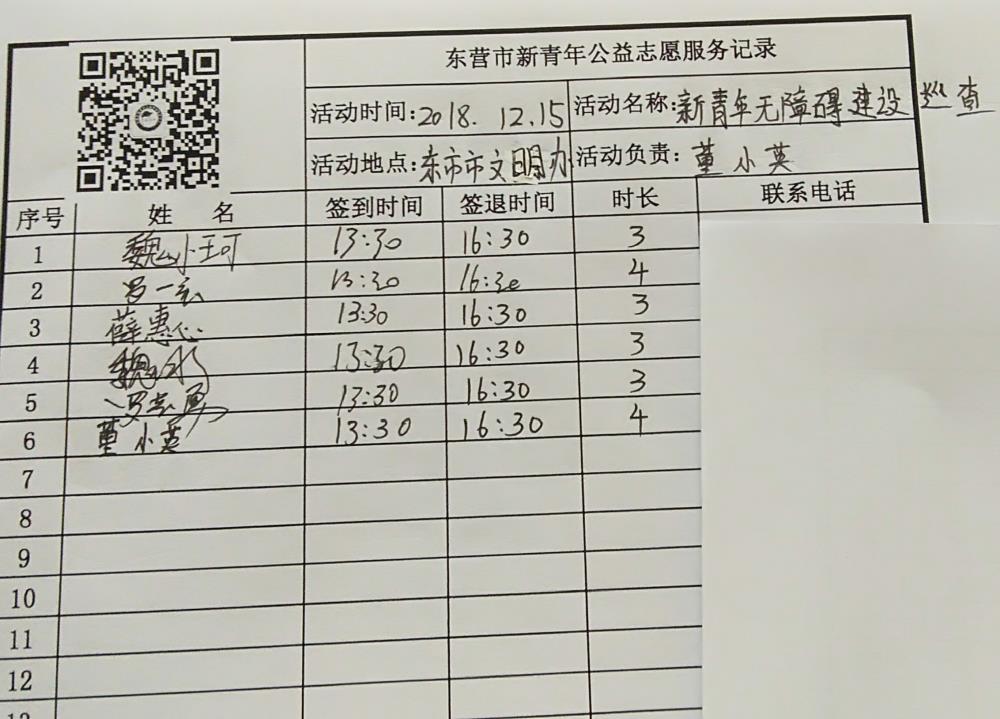 东营市新青年公益志愿服务记录
活动时间:2018.12.15 活动名称:新青年无障碍建设巡查
活动地点:东市市文明办 活动负责:董小英
序号 姓 名 签到时间 签退时间 时长 联系电话
1 魏小珂 13:30 16:30 3
2 13:30 16:30 4
3 薛惠心 13:30 16:30 3
4 13:30 16:30 3
5 13:30 16:30 3
6 董小英 13:30 16:30 4
7
8
9
10
11
12
13